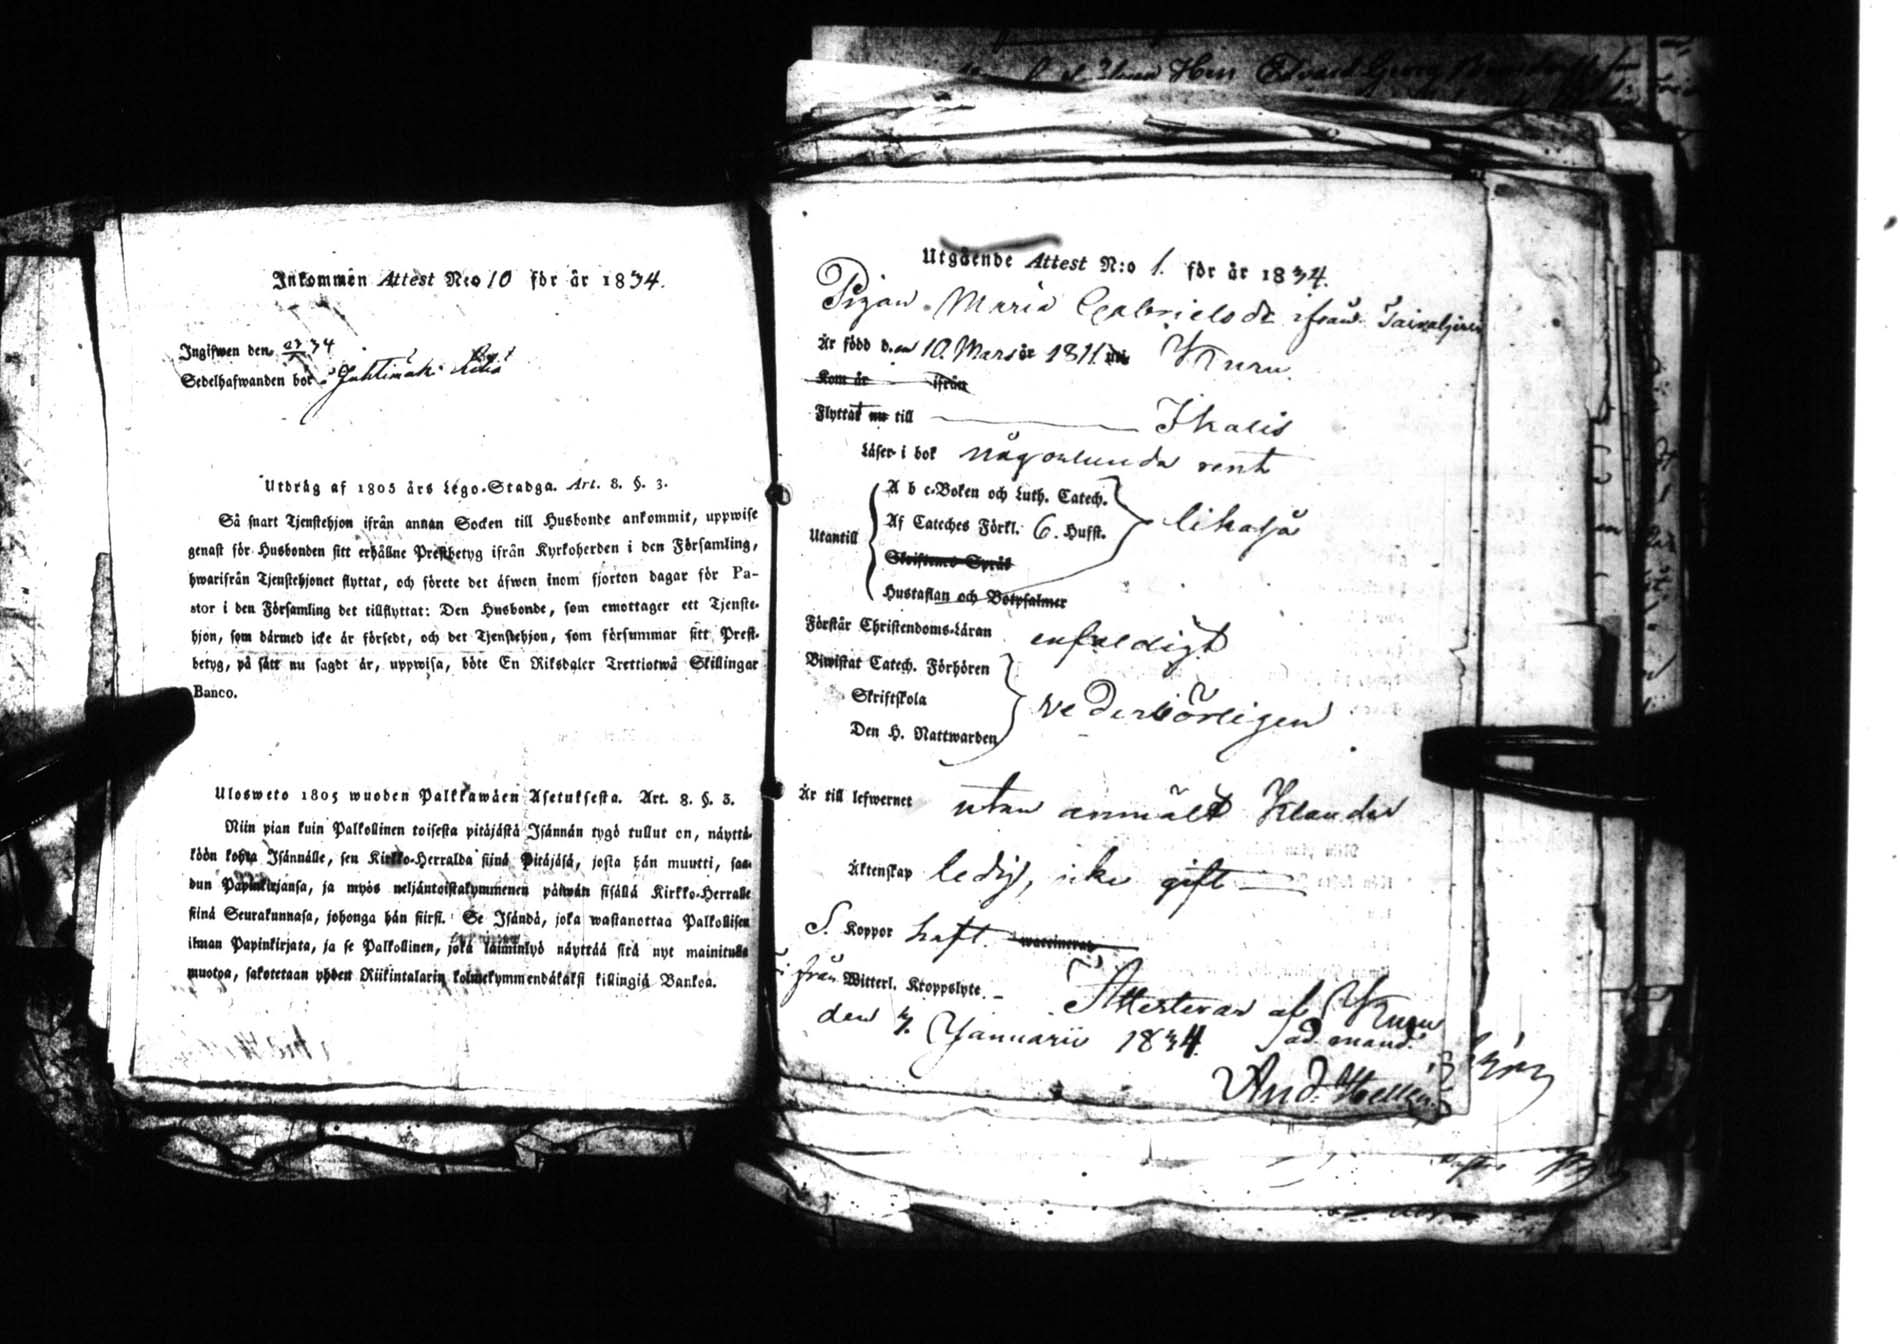 Inkommen Attest N:o 10 för år 1834.
Ingifwen den 34
Sedelhafwanden bor i
Utdråg af 1805 års Lego-Stadga. Art. 8. §. 3.
Så snart Tjenstehjon ifrån annan Socken till Husbonde ankommit, uppwise
genast för Husbonden sitt erhållne Prestbetyg ifrån Kyrkoherden i den Församling,
hwarifrån Tjenstehjonet flyttat, och förete det äfwen inom fjorton dagar för Pa-
stor i den Församling det tillflyttat: Den Husbonde, som emottager ett Tjenste-
hjon, som dårmed icke är försedt, och det Tjenstehjon, som försummar sitt Prest-
betyg, på sätt nu sagdt är, uppwisa, böte En Riksdaler Trettiotwå Skillingar
Banco.
Ulosweto 1805 wuoden Palkkawäen Asetuksesta. Art. 8. §. 3.
Niin pian kuin Palkollinen toisesta pitäjästä Isännän tygö tullut on, näyttä-
köön kohta Isännälle, sen Kirkko-Herralda siinä Pitäjäsä, josta hän muutti, saa-
dun Papinkirjansa, ja myös neljäntoistakymmenen päiwän sisällä Kirkko-Herralle
siinä Seurakunnasa, johonga hän siirsi. Se Isändä, joka wastanottaa Palkollisen
ilman Papinkirjata, ja se Palkollinen, joka laiminlyö näyttää sitä nyt mainitulla
muotoa, sakotetaan yhden Riikintalarin kolmekymmendäkaksi killingiä Bankoa.
Utgående Attest N:o 1. för år 1834.
Pigan Maria Gabrielsdr ifrån
Är född d.en 10. Mars år 1811. uti Kuru.
Kom år ifrån
Flyttat nu till Ikalis
Läser i bok någorlunda rent
A b c-Boken och Luth. Catech.
Utantill Af Cateches Förkl. 6. Hufst. likaså
Skriftenes Språk
Hustaflan och Botpsalmer
Förstår Christendoms-Läran enfaldigt
Biwistat Catech. Förhören
Skriftskola vederbörligen
Den H. Nattwarden
Är till lefwernet utan anmält Klander
Äktenskap ledig, icke gift
S. Koppor haft. waccinerad
från Witterl. Kroppslyte. Attesterar af Kuru
den 7. Januarii 1834. ad mand.
And. Hellén